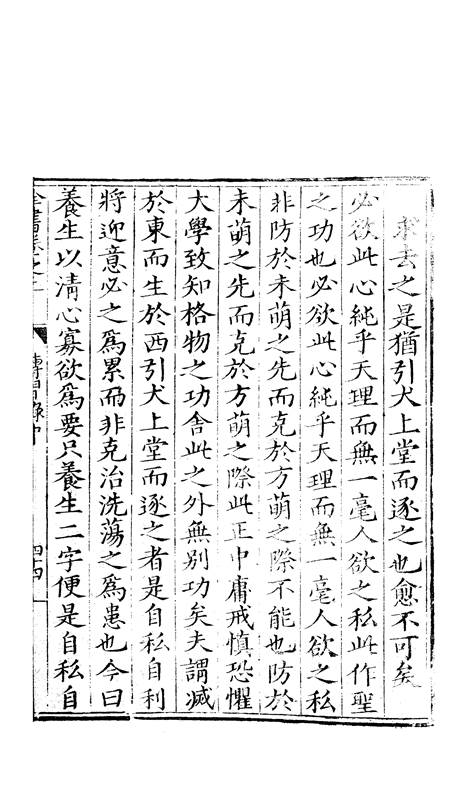 求去之是猶引犬上堂而逐之也愈不可矣
必欲此心純乎天理而無一毫人欲之私此作聖
之功也必欲此心純乎天理而無一毫人欲之私
非防於未萌之先而克於方萌之際不能也防於
未萌之先而克於方萌之際此正中庸戒慎恐懼
大學致知格物之功舍此之外無別功矣夫謂滅
於東而生於西引犬上堂而逐之者是自私自利
將迎意必之為累而非克治洗蕩之為患也今曰
養生以清心寡欲為要只養生二字便是自私自
全書卷之二
傳習錄中
四十四